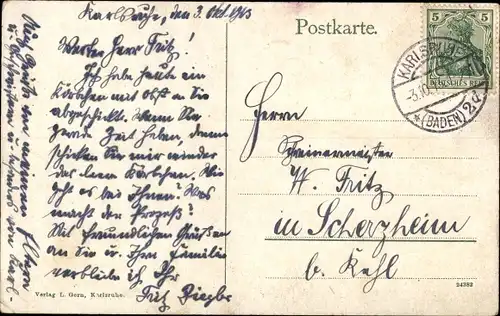 Karlsruhe, den 3. Okt. 1913
Werter Herr Fritz!
Ich habe heute ein
Körbchen mit Obst an Sie
abgeschickt. Wenn Sie
gerade Zeit haben, dann
schicken Sie mir wieder
das leere Körbchen. Wie
geht es bei Ihnen? Was
macht der Prozeß?
Mit freundlichen Grüßen
an Sie u. Ihre Familie
verbleibe ich Ihr
Fritz Ziegler
Viele Grüße von meinen Eltern
u. Geschwistern u. besonders von Karl
Verlag L. Gern, Karlsruhe.
Postkarte.
5 5
DEUTSCHES REICH
KARLSRUHE
-3.10.
*(BADEN) 2d
Herrn
Schreinermeister
W. Fritz
in Scherzheim
b. Kehl
24382